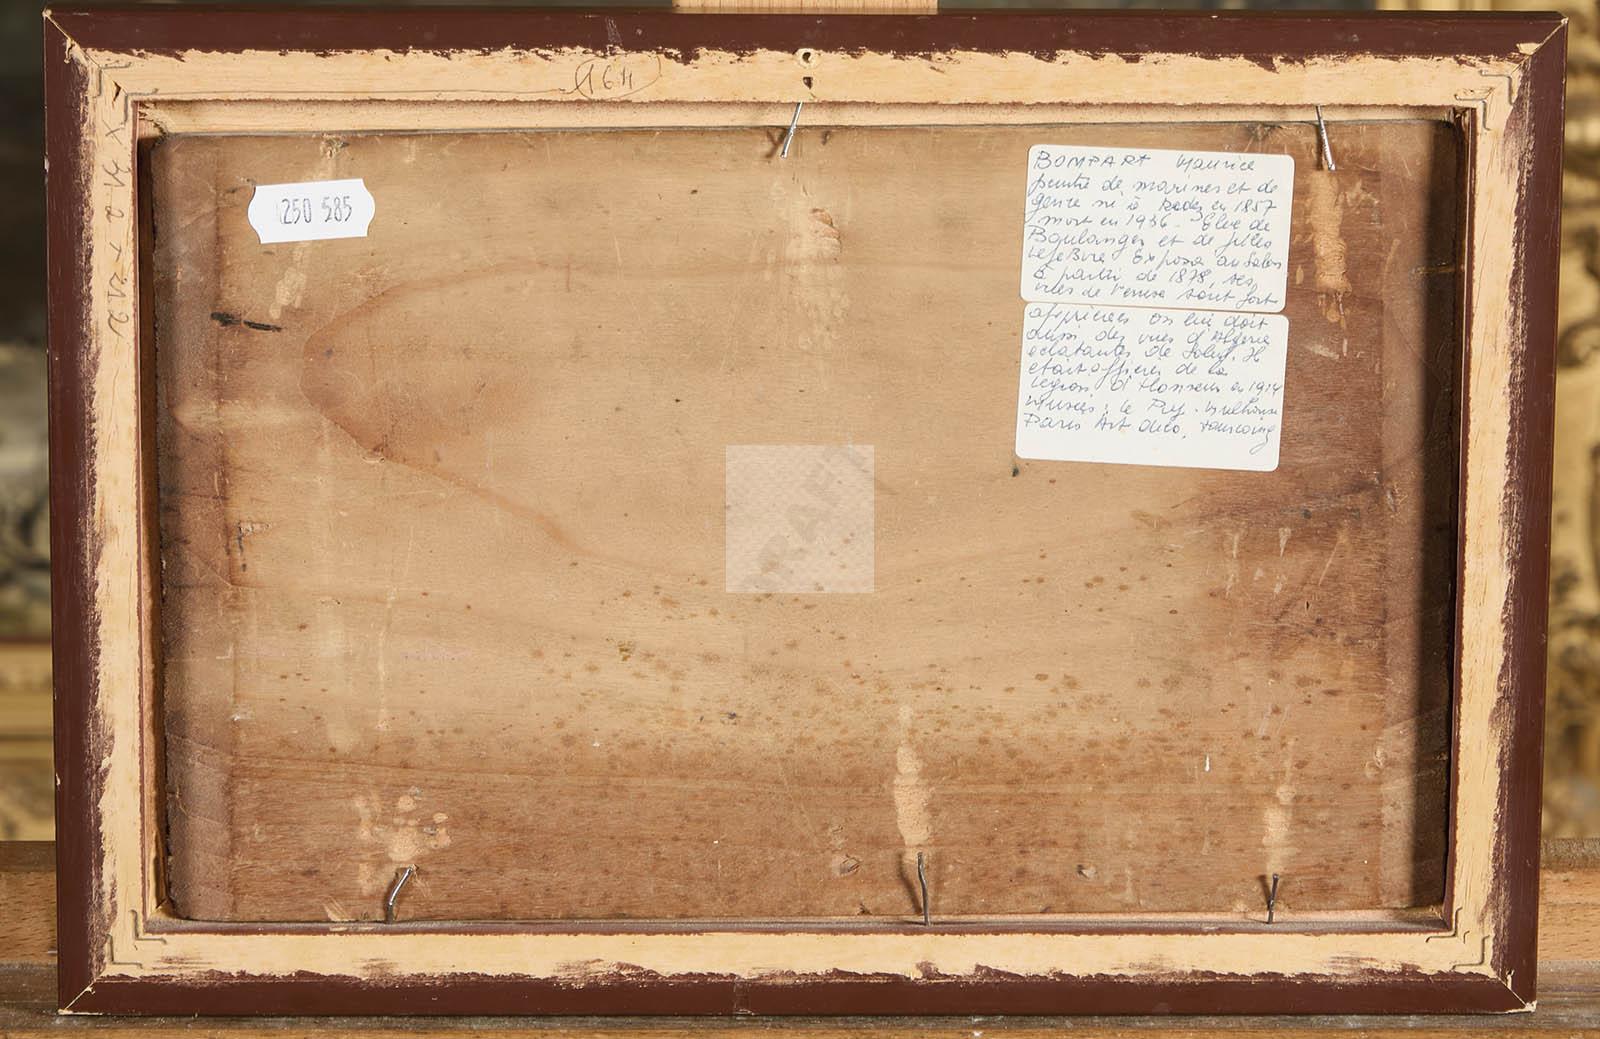 1641
X M 2 + 212
250 585
BOMPART Maurice
peintre de marines et de
genre né à Rodez en 1857
mort en 1936 - Elève de
Boulanger et de Jules
Lefebvre Exposa au Salon
à partir de 1878, ses
vues de Venise sont fort
appréciées on lui doit
aussi des vues d'Algérie
éclatantes de Soleil. Il
était officier de la
Légion d'Honneur en 1914
Musées : Le Puy - Mulhouse
Paris Art déco, Tourcoing